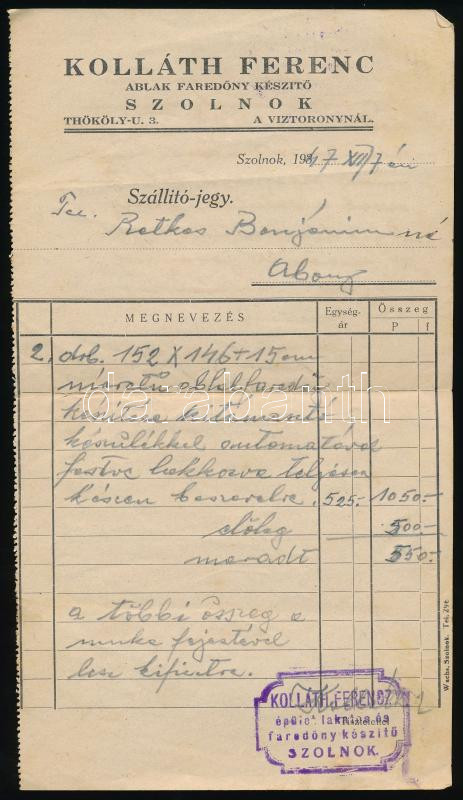 KOLLÁTH FERENC
ABLAK FAREDŐNY KÉSZITŐ
SZOLNOK
THÖKÖLY-U. 3. A VIZTORONYNÁL.
Szolnok, 1947 XII 7 én
Szállitó-jegy.
Retkes Benjáminné
Abony
MEGNEVEZÉS Egység-ár Összeg
P f
2. drb. 152 X 146 + 15 cm
méretű ablakfaredőny
készítése kitámasztó
készülékkel automatával
festve lakkozva teljesen
készen beszerelve. 525.- 1050.-
előleg 500.-
maradt 550.-
a többi összeg a
munka
lesz kifizetve.
Tisztelettel
KOLLÁTH FERENC
épület lakatos és
faredőny készítő
SZOLNOK.
Wachs, Szolnok. Tel.
darabanth